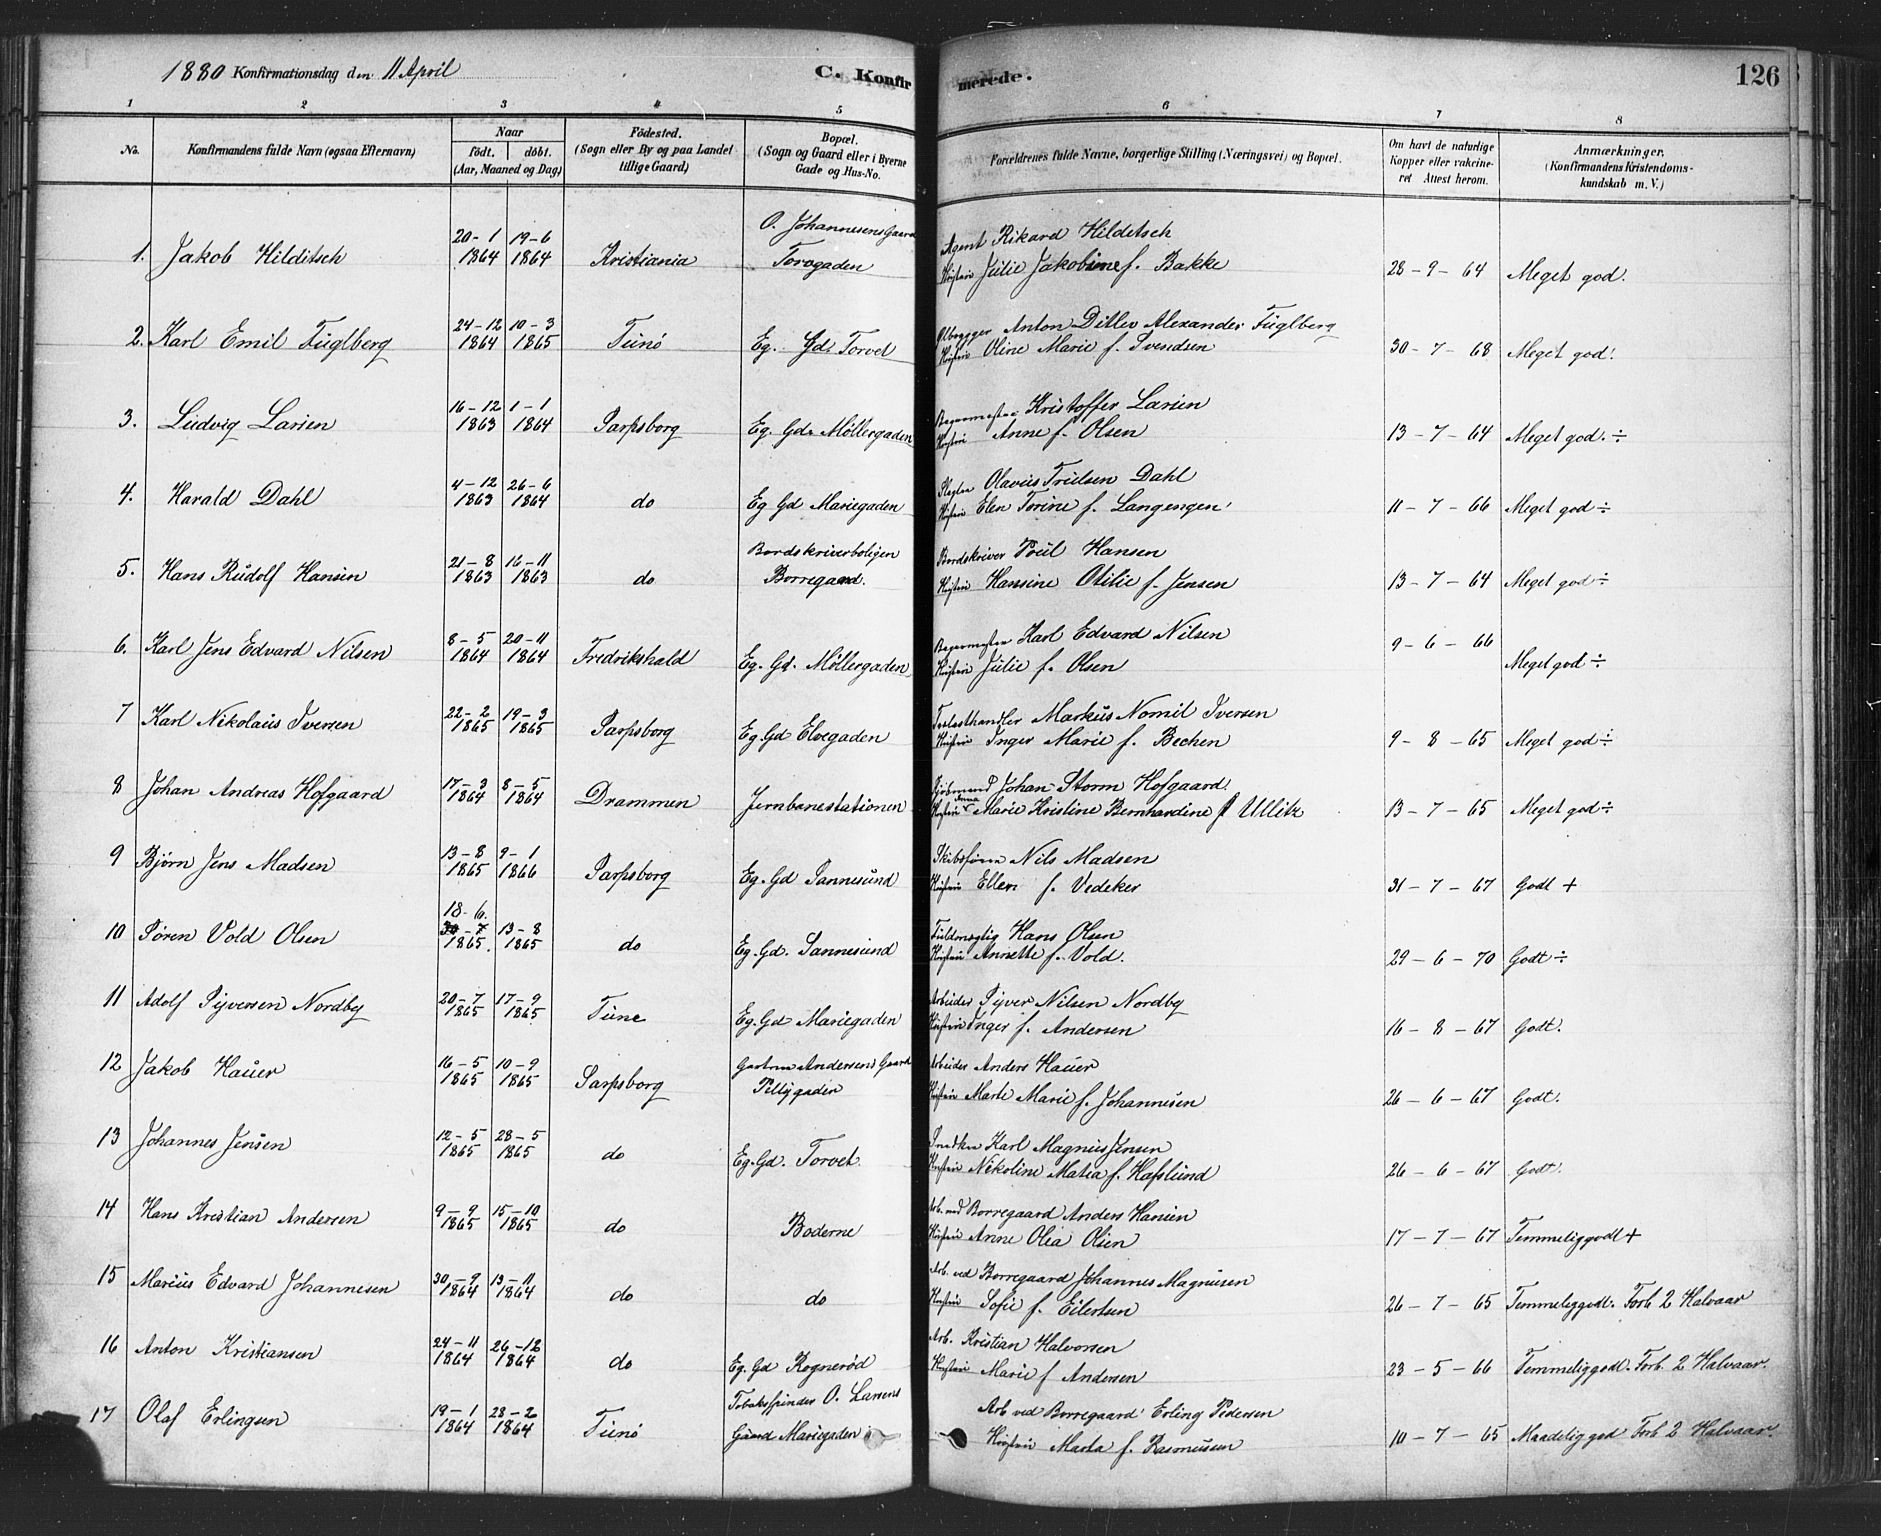 1880 Konfirmationsdag den 11 April
C. Konfirmerede.
126
1 2 3 4 5 6 7 8
No.
Konfirmandens fulde Navn (ogsaa Efternavn)
Naar
födt. döbt.
(Aar, Maaned og Dag)
Födested.
(Sogn eller By og paa Landet
tillige Gaard)
Bopæl.
(Sogn og Gaard eller i Byerne
Gade og Hus-No.
Forældrenes fulde Navne, borgerlige Stilling (Næringsvei) og Bopæl.
Om havt de naturlige
Kopper eller vakcine-
ret Attest herom.
Anmærkninger.
(Konfirmandens Kristendoms-
kundskab m. V.)
1. Jakob Hilditsch 20-1 1864 19-6 1864 Kristiania O. Johannesens Gaard
Torvgaden
Agent Rikard Hilditsch
Hustru Julie Jakobine f. Bakke 28-9-64 Meget god.
2. Karl Emil Fuglberg 24-12 1864 10-3 1865 Tunø Eg. Gd. Torvet
Ølbrygger Anton Ditlev Alexander Fuglberg
Hustru Oline Marie f. Svendsen 30-7-68 Meget god.
3. Ludvig Larsen 16-12 1863 1-1 1864 Sarpsborg Eg. Gd. Möllergaden
Kristoffer Larsen
Hustru Anne f. Olsen 13-7-64 Meget god. ÷
4. Harald Dahl 4-12 1863 26-6 1864 do Eg Gd Mariegaden
Slagter Olavus Trulsen Dahl
Hustru Elen Torine f. Langengen 11-7-66 Meget god ÷
5. Hans Rudolf Hansen 21-8 1863 16-11 1863 do Bordskriverboligen
Borregaard.
Bordskriver Poul Hansen
Hustru Hansine Otilie f. Jensen 13-7-64 Meget god ÷
6. Karl Jens Edvard Nilsen 8-5 1864 20-11 1864 Fredrikshald Eg. Gd. Möllergaden
Karl Edvard Nilsen
Hustru Julie f. Olsen 9-6-66 Meget god ÷
7 Karl Nikolaus Iversen 22-2 1865 19-3 1865 Sarpsborg Eg. Gd Elvegaden
Trælasthandler Markus Nomil Iversen
Hustru Inger Marie f. Bechen 9-8-65 Meget god ÷
8 Johan Andreas Hofgaard 17-3 1864 8-5 1864 Drammen Jernbanestationen
Johan Storm Hofgaard
Hustru Anna Marie Kristine Bernhardine f Ullitz 13-7-65 Meget god ÷
9 Bjørn Jens Madsen 13-8 1865 9-1 1866 Sarpsborg Eg. Gd Sannesund
Skibsfører Nils Madsen
Hustru Ellen f. Vedeker 31-7-67 Godt +
10 Søren Vold Olsen 18-6. 30-7 1865. 13-8 1865 do Eg. Gd. Sannesund
Fuldmægtig Hans Olsen
Hustru Annette f. Vold. 29-6-70 Godt ÷
11 Adolf Syversen Nordby 20-7 1865 17-9 1865 Tune Eg. Gd Mariegaden
Arbeider Syver Nilsen Nordby
Hustru Inger f. Andersen 16-8-67 Godt.
12 Jakob Hauer 16-5 1865 10-9 1865 Sarpsborg Gartner Andersens Gaard
Pellygaden
Arbeider Anders Hauer
Hustru Marte Marie f. Johannesen 26-6-67 Godt.
13 Johannes Jensen 12-5 1865 28-5 1865 do Eg. Gd. Torvet.
Snedker Karl Magnus Jensen
Hustru Nikoline Matia f. Hafslund 26-6-67 Godt.
14 Hans Kristian Andersen 9-9 1865 15-10 1865 do Boderne
Arb. ved Borregaard Anders Hansen
Hustru Anne Olea Olsen 17-7-67 Temmeliggodt +
15 Marius Edvard Johannesen 30-9 1864 13-11 1864 do do
Arb. ved Borregaard Johannes Magnusen
Hustru Sofie f. Eilertsen 26-7-65 Temmeliggodt. Forb 2 Halvaar
16 Anton Kristiansen 24-11 1864 26-12 1864 do Eg. Gd Rognerød
Arb. Kristian Halvorsen
Hustru Marie f Andersen 23-5-66 Temmeliggodt. Forb. 2 Halvaar.
17 Olaf Erlingsen 19-1 1864 28-2 1864 Tunø Tobaksspinder O. Larsens
Gaard Mariegaden
Arb ved Borregaard Erling Pedersen
Hustru Marta f. Rasmussen 10-7-65 Maadeliggod Forb 2 Halvaar.